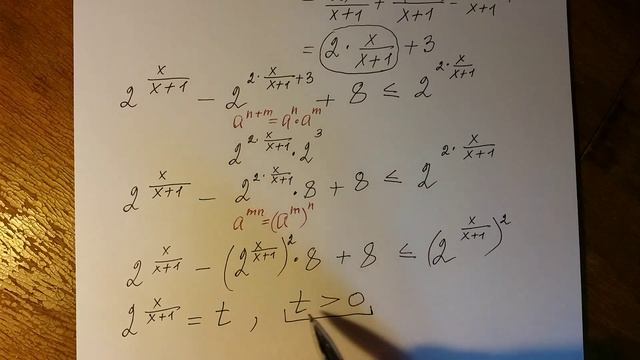 x+1 x+1 - x+1
= 2 · x/(x+1) + 3
2^(x/(x+1)) - 2^(2·x/(x+1)+3) + 8 ≤ 2^(2·x/(x+1))
a^(n+m) = a^n · a^m
2^(2·x/(x+1)) · 2^3
2^(x/(x+1)) - 2^(2·x/(x+1)) · 8 + 8 ≤ 2^(2·x/(x+1))
a^(mn) = (a^m)^n
2^(x/(x+1)) - (2^(x/(x+1)))^2 · 8 + 8 ≤ (2^(x/(x+1)))^2
2^(x/(x+1)) = t , t > 0